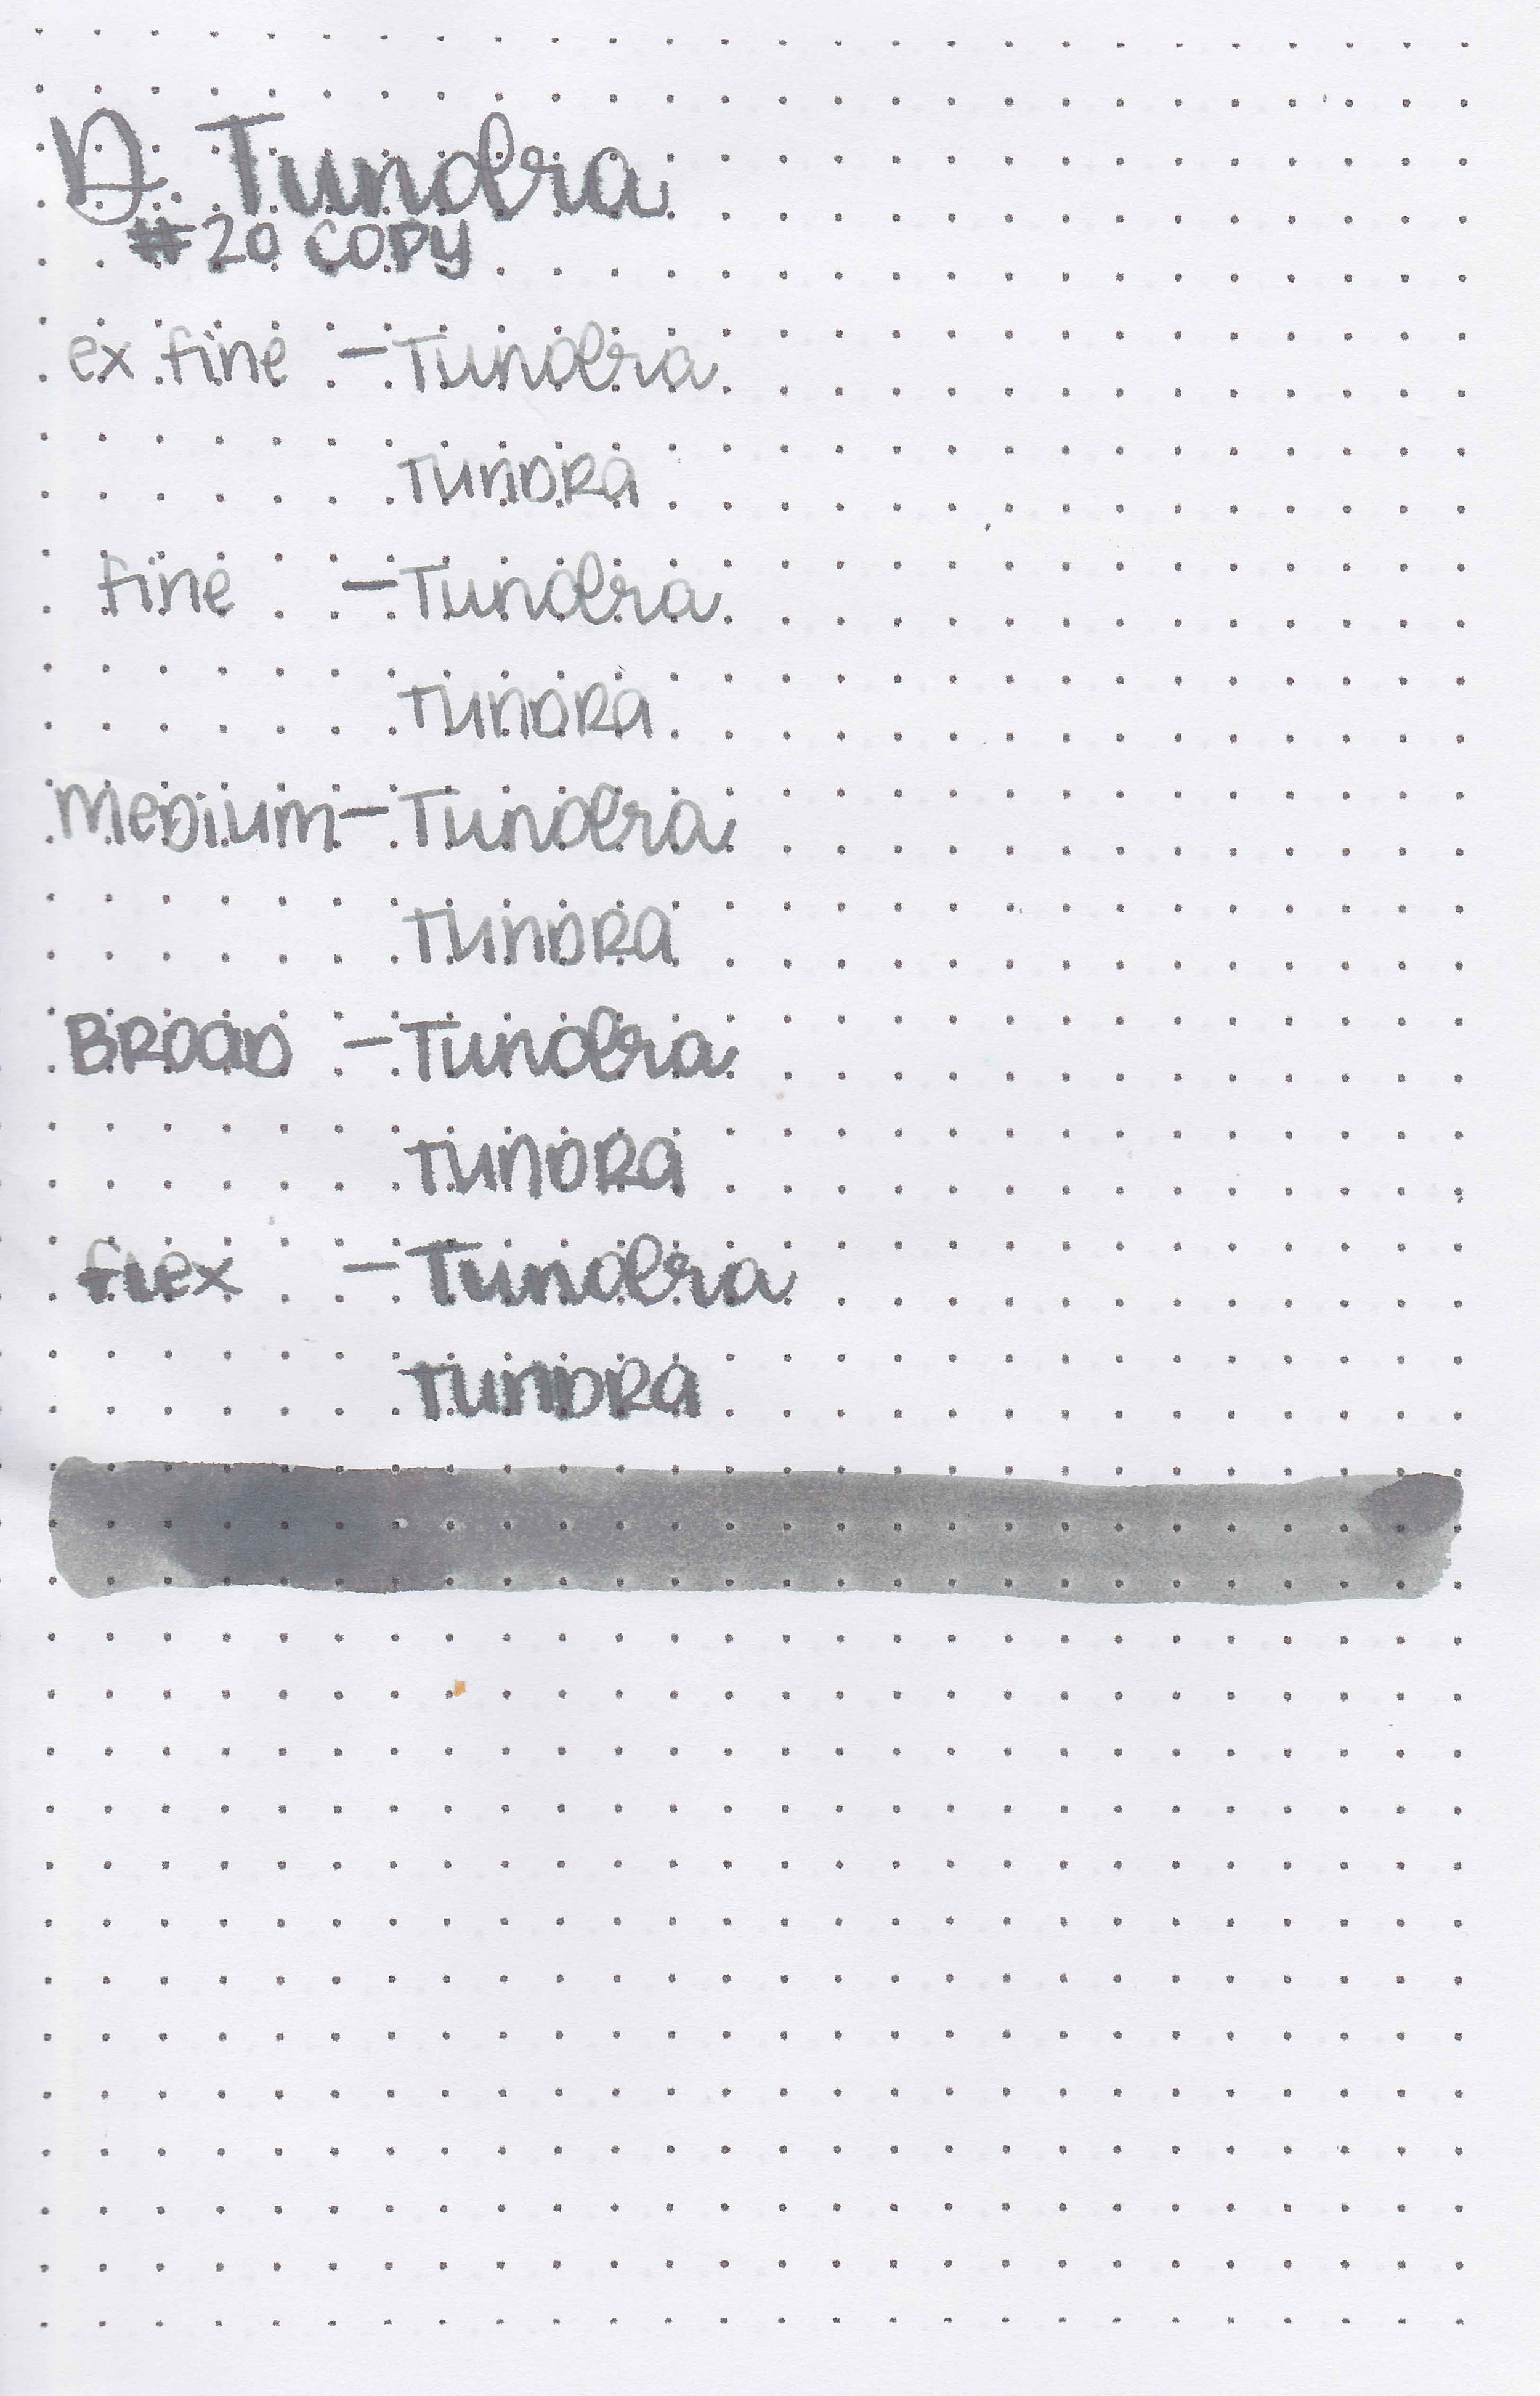 D. Tundra
#20 COPY
ex fine - Tundra
TUNDRA
fine - Tundra
TUNDRA
Medium - Tundra
TUNDRA
BROAD - Tundra
TUNDRA
flex - Tundra
TUNDRA